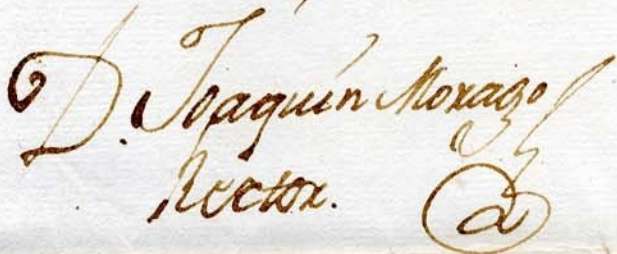 D. Joaquín Morago
Rector.